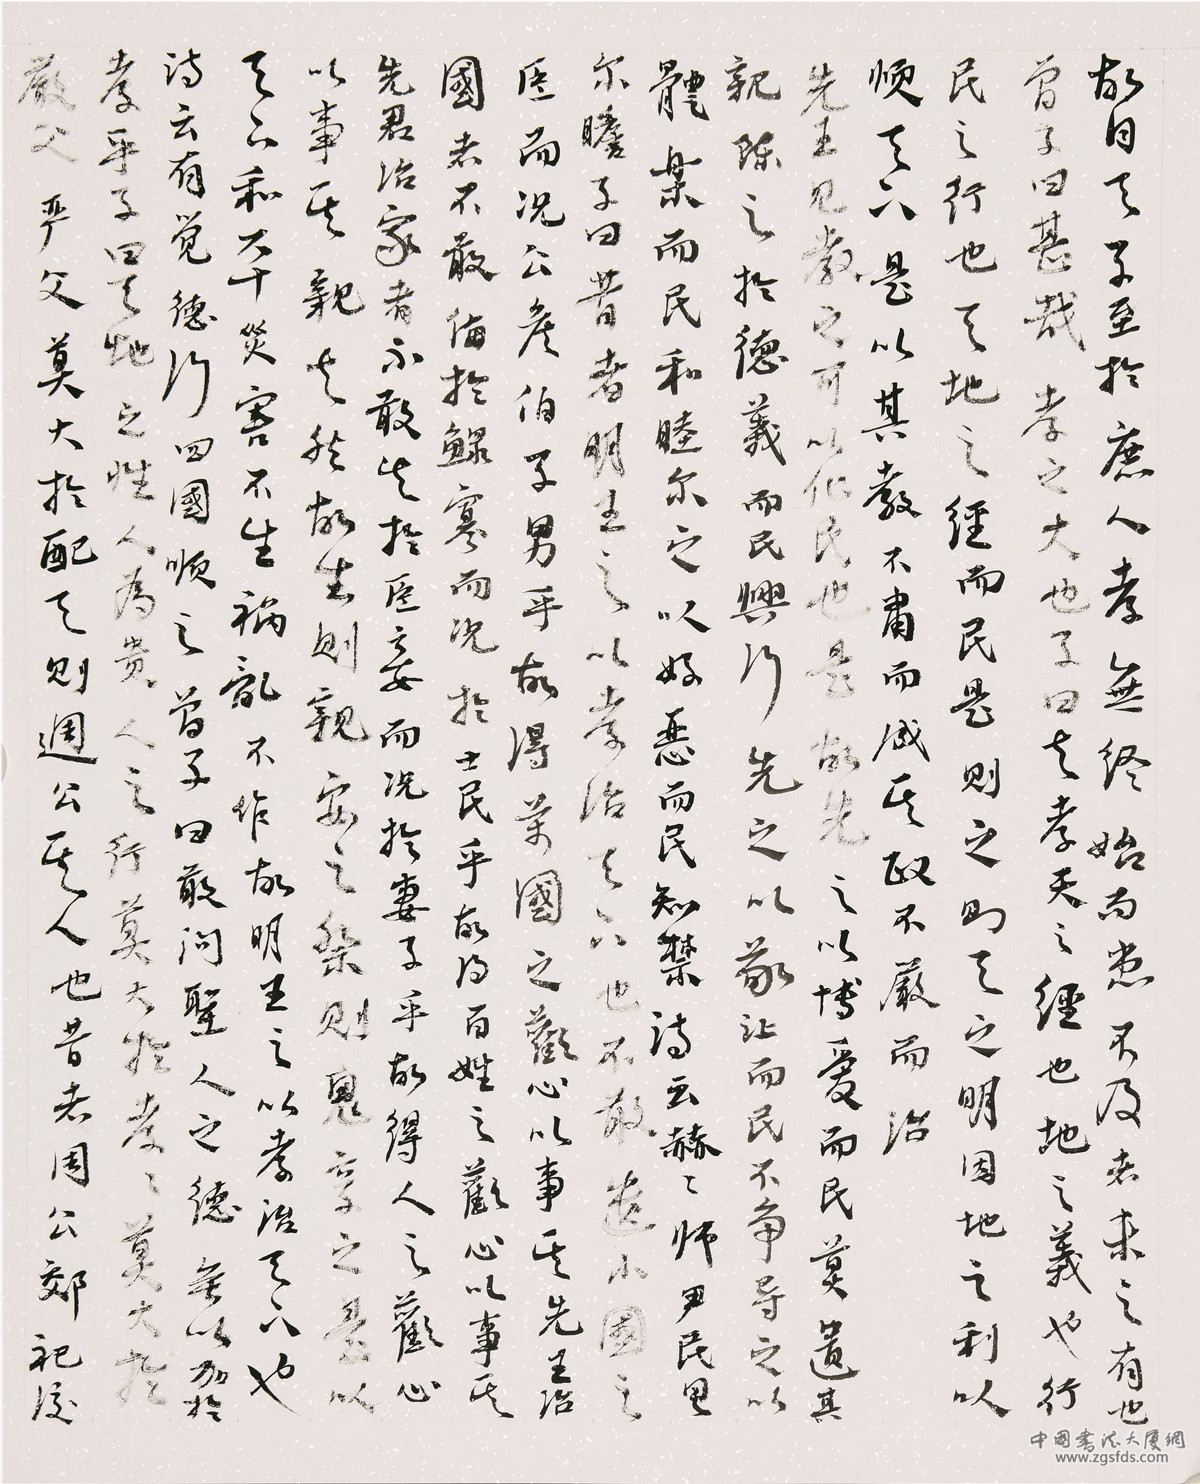 故自天子至於庶人孝無终始而患不及者未之有也
曾子曰甚哉孝之大也子曰夫孝天之經也地之義也行
民之行也天地之經而民是則之则天之明因地之利以
順天下是以其教不肅而成其政不嚴而治
先王見教之可以化民也是故先之以博愛而民莫遺其
親陈之於德義而民興行先之以敬让而民不争导之以
體樂而民和睦尔之以好惡而民知禁诗云赫〻师尹民具
尔瞻子曰昔者明王之以孝治天下也不敢遺小國之
臣而况公侯伯子男乎故得萬國之歡心以事其先王治
國者不敢侮於鰥寡而况於士民乎故得百姓之歡心以事其
先君治家者不敢失於臣妾而况於妻子乎故得人之歡心
以事其親夫然故生則親安之祭則鬼享之是以
天下和平災害不生禍亂不作故明王之以孝治天下也
诗云有觉德行四國順之曾子曰敢问聖人之德無以加於
孝乎子曰天地之性人為贵人之行莫大於孝〻莫大於
嚴父严父莫大於配天則週公其人也昔者周公郊祀后
中国书法大厦網
www.zgsfds.com